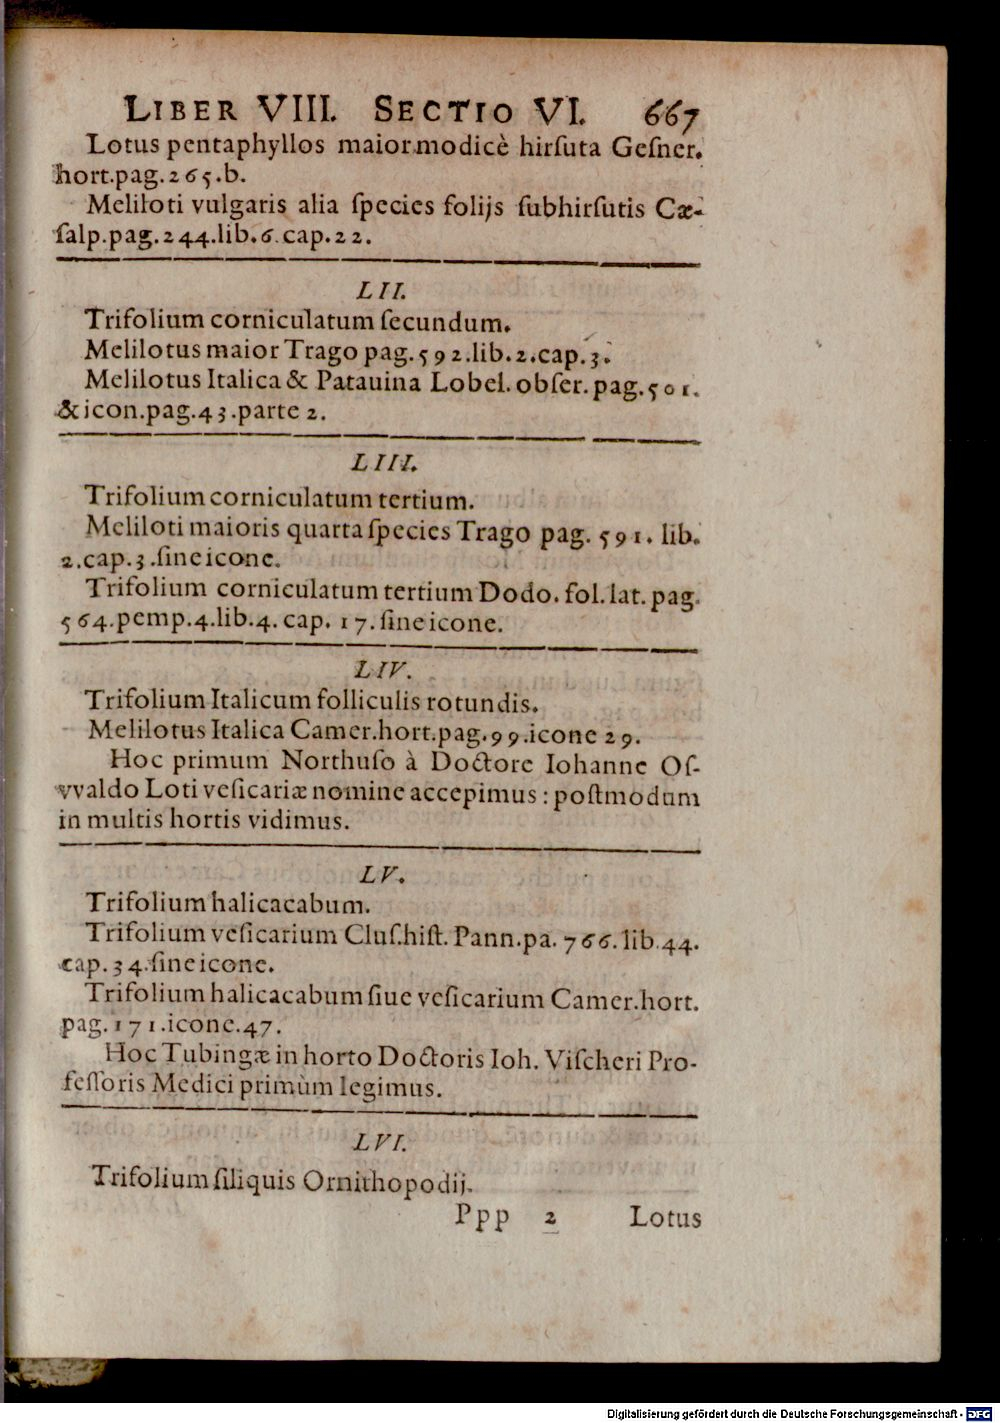 LIBER VIII. SECTIO VI. 667
Lotus pentaphyllos maior modicè hirſuta Geſner.
hort.pag.265.b.
Meliloti vulgaris alia ſpecies folijs ſubhirſutis Cæ-
ſalp.pag.244.lib.6.cap.22.
LII.
Trifolium corniculatum ſecundum.
Melilotus maior Trago pag.592.lib.2.cap.3.
Melilotus Italica & Patauina Lobel.obſer.pag.501.
& icon.pag.43.parte 2.
LIII.
Trifolium corniculatum tertium.
Meliloti maioris quarta ſpecies Trago pag. 591. lib.
2.cap.3.ſine icone.
Trifolium corniculatum tertium Dodo. fol. lat. pag.
564.pemp.4.lib.4. cap. 17. ſine icone.
LIV.
Trifolium Italicum folliculis rotundis.
Melilotus Italica Camer.hort.pag.99.icone 29.
Hoc primum Northuſo à Doctore Iohanne Oſ-
vvaldo Loti veſicariæ nomine accepimus : poſtmodum
in multis hortis vidimus.
LV.
Trifolium halicacabum.
Trifolium veſicarium Cluſ.hiſt. Pann.pa. 766. lib.44.
cap.34.ſine icone.
Trifolium halicacabum ſiue veſicarium Camer.hort.
pag.171.icone.47.
Hoc Tubingæ in horto Doctoris Ioh. Viſcheri Pro-
feſſoris Medici primùm legimus.
LVI.
Trifolium ſiliquis Ornithopodij.
Ppp 2 Lotus
Digitalisierung gefördert durch die Deutsche Forschungsgemeinschaft - DFG